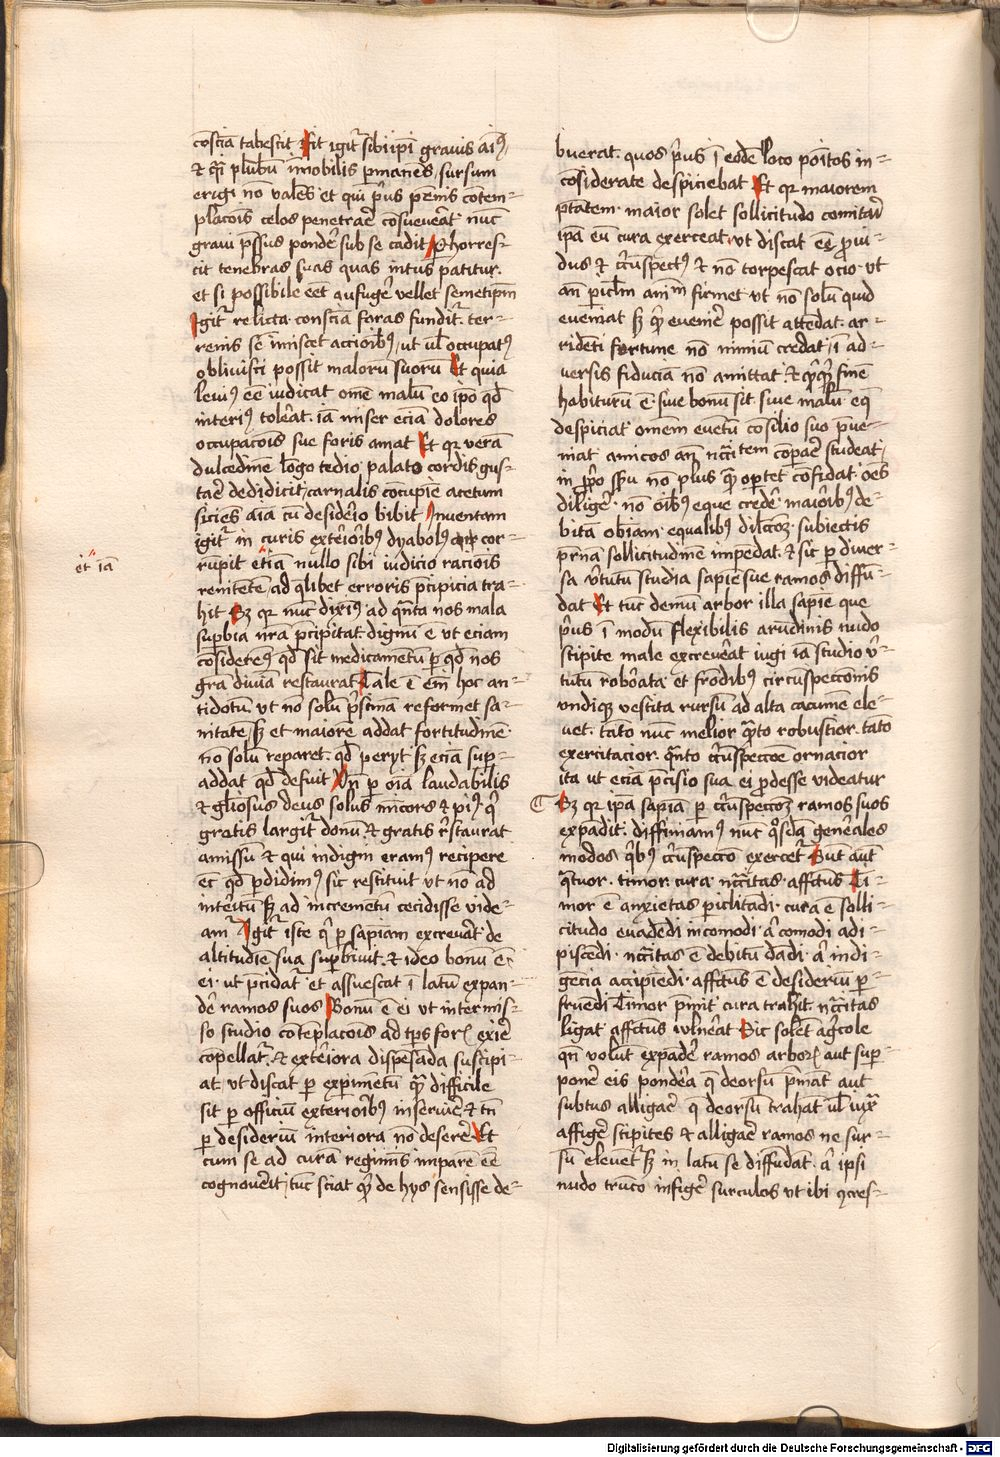 cōsciā tabescit Fit igit᷑ sibi ip̄i grauis aīꝰ
& q̄ꝫ plūbū īmobilis p̄manēs sursum
erigi nō valēs et qui p̄us pēnis cōtem⸗
placōīs celos penetrare cōsueuerat nūc
graui p̄ssus pondere sub se cadit Perhorres⸗
cit tenebras suas quas intus patitur.
et si possibile eēt aufugere vellet semetip̄m
Igit᷑ relicta consciā foras fundit᷑. ter⸗
renis se īmiscet accioībꝰ, ut vl̄ occupatꝰ
obliuisci possit malorū suorū Et quia
leuiꝰ eē iudicat omē malū eo ip̄o qd̄
interiꝰ tolerat. iā miser eciā dolores
occupacōīs sue foris amat Et qꝛ verā
dulcedinē lōgo tedio palato cordis gus⸗
tare dedidicit, carnalis cōcupīe acetum
sicies aīa cū desiderio bibit Inuentam
igit᷑ in curis exterioribꝰ dyabolꝰ cor⸗
rūpit etiā nullo sibi iudicio racīoīs
et iā
renitētē, ad qͥlibet erroris p̄cipicia tra⸗
hit Sꝫ qꝛ nūc dixīꝰ ad qͣnta nos mala
sup̄bia nr̄a p̄cipitat dignū ē vt eciam
cōsideremꝰ qd̄ sit medicamētū ꝑ qd̄ nos
gr̄a diuīa restaurat Tale ē em̄ hoc an⸗
tidotū. vt nō solū p̄stinā reformet sa⸗
nitatē, sꝫ et maiorē addat fortitudinē
nō solū reparet. qd̄ peryt sꝫ eciā sup⸗
addat qd̄ defuit Vn̄ ꝑ oīa laudabilis
& gl̄iosus deus solus micors & piꝰ. qͥ
gratis largit᷑ donū. & gratis r̄staurat
amissū & qui indigni eramꝰ recipere
ec̄ qd̄ ꝑdidimꝰ, sic restituit vt nō ad
interitū sꝫ ad incrementū cecidisse vide⸗
am᷑ Igit᷑ iste qͥ ꝑ sapīam excreuāt de
altitudīe sua sup̄biuit. & ideo bonū ē
ei. ut p̄cidat᷑ et assuescat ī latū expan⸗
dere ramos suos Bonū ē ei ut intermis⸗
so studio cōtēplacōīs ad tp̄s foras exire
cōpellat᷑. & exteriora dispēsāda suscipi⸗
at vt discat ꝑ exp̄imētū qͣꝫ difficile
sit ꝑ officiū exterioribꝰ inseruire & tn̄
ꝑ desideriū interiora nō deserere Et
cum se ad curā regiminis imparē eē
cognouerit, tūc sciat qͥꝫ de hys sensisse de⸗
buerat. quos p̄us ī eodē loco pōitos in⸗
cōsiderate despiciebat Et qꝛ maiorem
p̄tatem. maior solet sollicitudo comitari
ip̄a eū cura exerceat, vt discat eē proui⸗
dus & cͥcūspectꝰ & nō torpescat ocio. vt
an̄ piclm̄ animū firmet vt nō solū quid
eueniat sꝫ qͥꝫ euenire possit attēdat. ar⸗
ridēti fortune nō nimiū credat, ī ad⸗
uersis fiduciā nō amittat & qͥcqͥd finē
habiturū ē. siue bonū sit. siue malū. eqꝰ
despiciat omem euētū cōsilio suo p̄ue⸗
niat amicos an̄ nccitatem cōparare studeat,
in xp̄o spū nō plus qͣꝫ oportet cōfidat. oēs
diligere. nō oībꝰ eque credere. maioribꝰ de⸗
bitā obiam. equalibꝰ dilc̄coꝫ. subiectis
pr̄nā sollicitudinē impēdat. & sic ꝑ diuer⸗
sa vͥtutū studia sapīe sue ramos diffū⸗
dat Et tūc demū arbor illa sapīe que
p̄us ī modū flexibilis arūdinis nudo
stipite male excreuerat iugi iā studio vͥ⸗
tutū roborata et frōdibꝰ circūspeccōnis
vndiqꝫ vestita rursū ad alta cacumē ele⸗
uet. tāto nūc melior qͣto robustior. tāto
exercitacior. qͣnto cͥcūspeccōe ornacior
ita ut eciā p̄cisio sua ei ꝓdesse videatur
Sꝫ qꝛ ip̄a sapīa ꝑ cͥcūspeccoꝫ ramos suos
expādit. diffiniamꝰ nūc qͦsdā generales
modos qͥbꝰ cͥcūspeccō exercet᷑ Sūt aūt
qͣtuor. timor. cura. nccitas. affctus Ti⸗
mor ē anxietas ꝑiclitādi. cura ē solli⸗
citudo euadēdi incōmodi. aͥ cōmodi adi⸗
piscēdi. nccitas ē debitū dādi. aͥ indi⸗
gēcia accipiēdi. affctus ē desideriū ꝑ⸗
fruēdi Timor p̄mit cura trahit. nccitas
ligat affctus vulnerat Sic solēt agͥcole
qn̄ volūt expādere ramos arboꝝ aut sup⸗
ponere eis pondera q̄ deorsū p̄māt aut
subtus alligare q̄ deorsū trahāt vl̄ iuxͣ
affigere stipites & alligare ramos ne sur⸗
sū eleuēt᷑ sꝫ in latū se diffūdāt. aͥ ipsi
nudo trūco infigere surculos vt ibi ꝯcres⸗
Digitalisierung gefördert durch die Deutsche Forschungsgemeinschaft - DFG